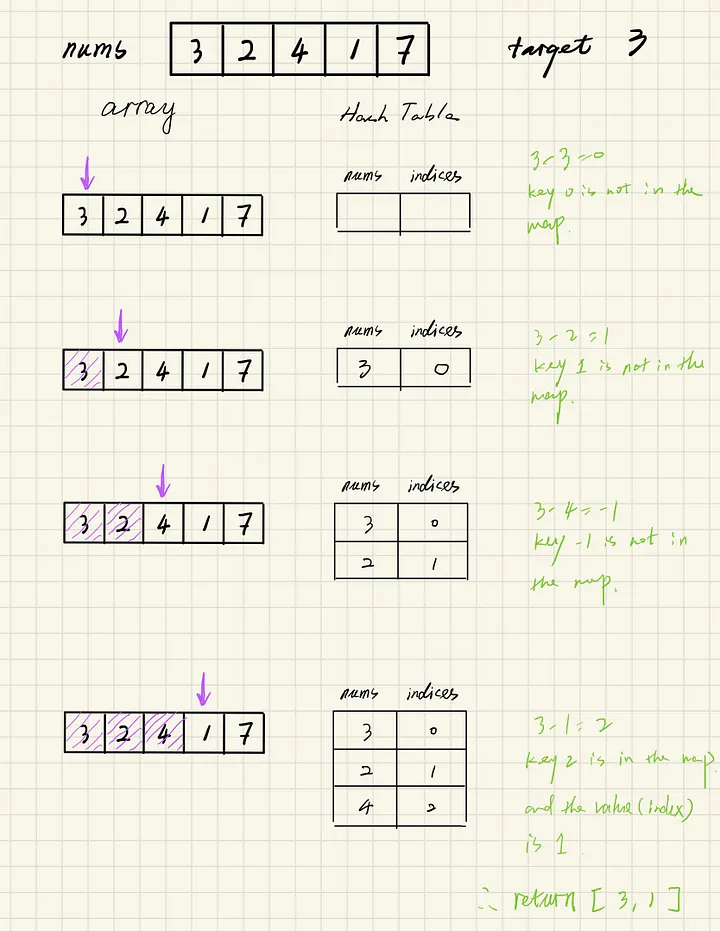 nums 3 2 4 1 7 target 3
array Hash Table
nums indices
3 2 4 1 7
3-3=0
key 0 is not in the
map.
nums indices
3 2 4 1 7
3 0
3-2=1
key 1 is not in the
map.
nums indices
3 2 4 1 7
3 0
2 1
3-4=-1
key -1 is not in
the map.
nums indices
3 2 4 1 7
3 0
2 1
4 2
3-1=2
key 2 is in the map.
and the value (index)
is 1.
∴ return [3, 1]